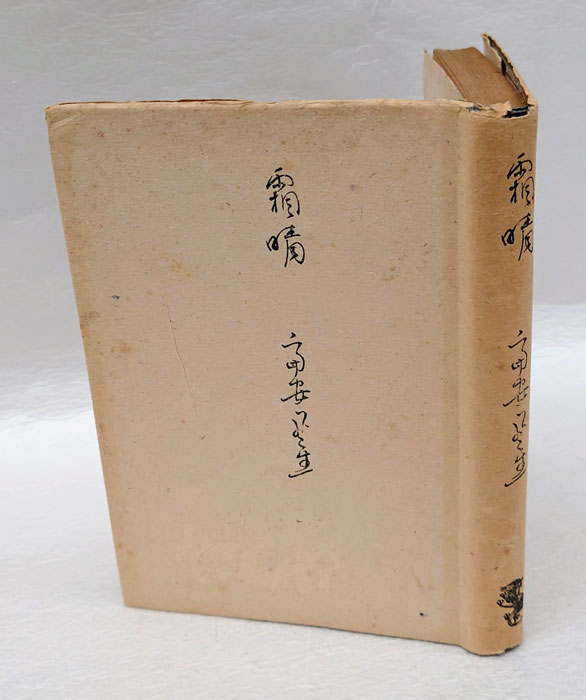 霜晴
富安風生
霜晴
富安風生